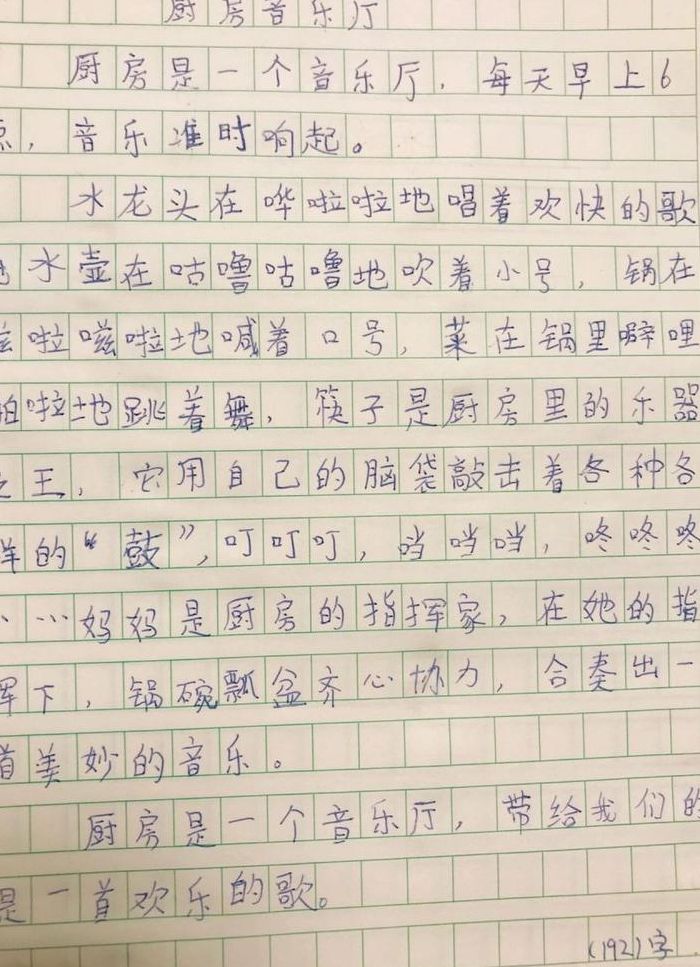 厨房音乐厅
厨房是一个音乐厅，每天早上6
点，音乐准时响起。
水龙头在哗啦啦地唱着欢快的歌
水壶在咕噜咕噜地吹着小号，锅在
滋啦嗞啦地喊着口号，菜在锅里噼哩
啪啦地跳着舞，筷子是厨房里的乐器
之王，它用自己的脑袋敲击着各种各
样的“鼓”，叮叮叮，当当当，咚咚咚
……妈妈是厨房的指挥家，在她的指
挥下，锅碗瓢盆齐心协力，合奏出一
首美妙的音乐。
厨房是一个音乐厅，带给我们的
是一首欢乐的歌。
（192）字